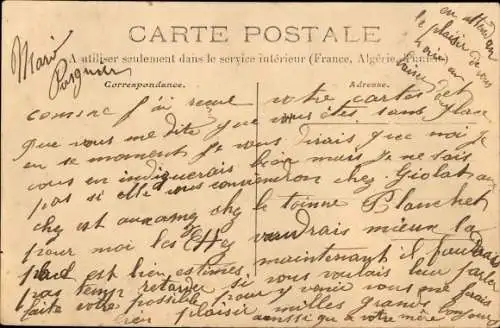 CARTE POSTALE
A utiliser seulement dans le service intérieur (France, Algérie, Tunisie)
Correspondance. Adresse.
Mario
en attendant
le plaisir de vous
voir
comme j'ai reçue votre carte et
que vous me dite que vous êtes sans place
en se moment je vous dirais que moi je
vous en indiquerais bien mais je ne sais
pas si elle vous conviendron chez Giolat
chez le Planchet
pour moi les vaudrais mieux la
est bien estimes maintenant il faudrais
pas temps retarder si vous voulais leur parler
faite votre possible pour y venir vous me ferais
bien plaisir milles grands bonjours
aussi qu'a votre mère